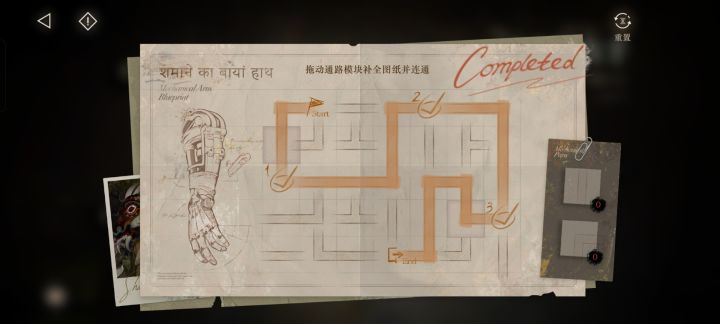 重置
शमाने का बायां हाथ
Mechanical Arm
Blueprint
拖动通路模块补全图纸并连通
Completed
Start
1
2
3
End
0
0